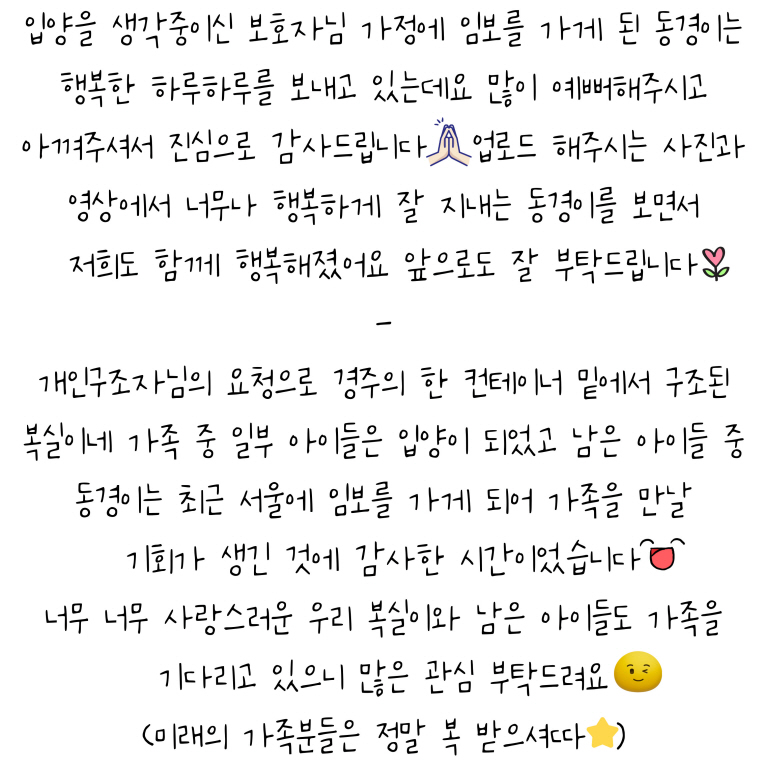 입양을 생각중이신 보호자님 가정에 임보를 가게 된 동경이는
행복한 하루하루를 보내고 있는데요 많이 예뻐해주시고
아껴주셔서 진심으로 감사드립니다🙏업로드 해주시는 사진과
영상에서 너무나 행복하게 잘 지내는 동경이를 보면서
저희도 함께 행복해졌어요 앞으로도 잘 부탁드립니다🌷
-
개인구조자님의 요청으로 경주의 한 컨테이너 밑에서 구조된
복실이네 가족 중 일부 아이들은 입양이 되었고 남은 아이들 중
동경이는 최근 서울에 임보를 가게 되어 가족을 만날
기회가 생긴 것에 감사한 시간이었습니다
너무 너무 사랑스러운 우리 복실이와 남은 아이들도 가족을
기다리고 있으니 많은 관심 부탁드려요😉
(미래의 가족분들은 정말 복 받으셔따⭐)